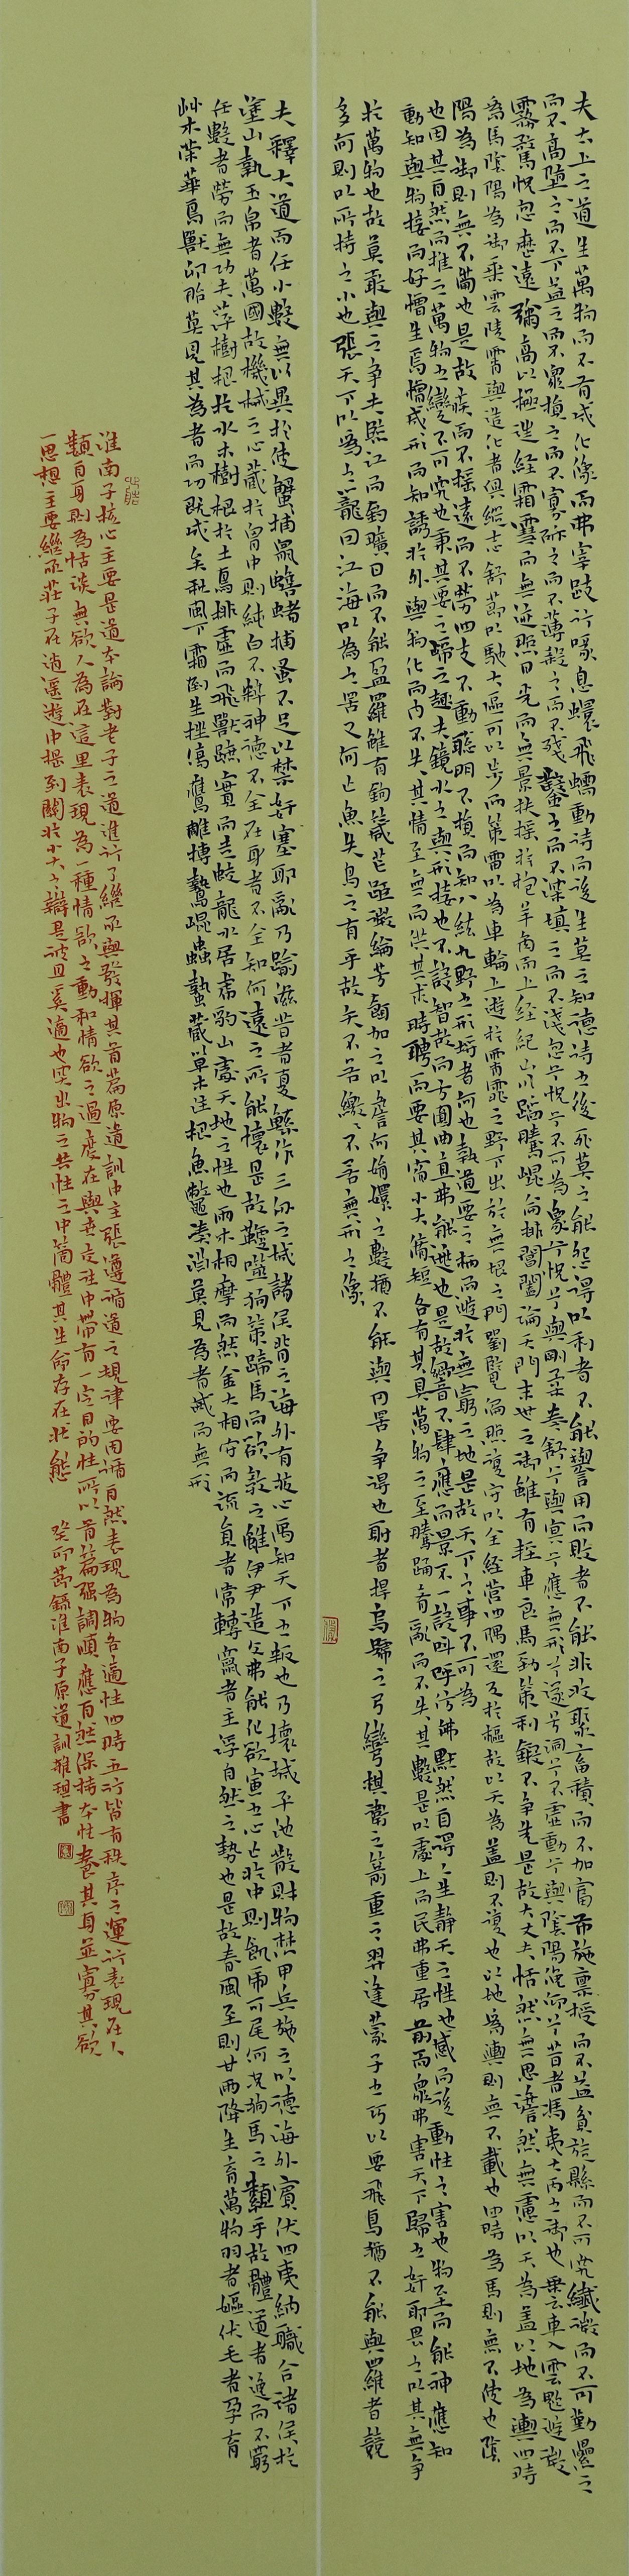 夫太上之道生萬物而不有成化像而弗宰跂行喙息蠉飛蠕動待而後生莫之知德待之後死莫之能怨得以利者不能譽用而敗者不能非收聚畜積而不加富布施稟授而不益貧旋縣而不可究纖微而不可勤累之
而不高墮之而不下益之而不衆損之而不寡斫之而不薄殺之而不殘鑿之而不深填之而不淺忽兮怳兮不可為象兮怳兮忽兮用不屈兮幽兮冥兮應無形兮遂兮洞兮不虛動兮與剛柔卷舒兮與陰陽俛仰兮昔者馮夷大丙之御也乘雲車入雲蜺游微
霧騖怳忽歷遠彌高以極往經霜雪而無迹照日光而無景扶搖抮抱羊角而上經紀山川蹈騰崑崙排閶闔淪天門末世之御雖有輕車良馬勁策利鍛不能與之爭先是故大丈夫恬然無思澹然無慮以天為蓋以地為輿四時
為馬陰陽為御乘雲陵霄與造化者俱縱志舒節以馳大區可以步而步可以驟而驟令雨師灑道使風伯掃塵電以為鞭策雷以為車輪上游於霄霓之野下出於無垠之門劉覽偏照復守以全經營四隅還反於樞故以天為蓋則無不覆也以地為輿則無不載也四時為馬則無不使也陰
陽為御則無不備也是故疾而不搖遠而不勞四支不動聰明不損而知八紘九野之形埒者何也執道要之柄而游於無窮之地是故天下之事不可為
也因其自然而推之萬物之變不可究也秉其要之歸之趣夫鏡水之與形接也不設智故而方圓曲直弗能逃也是故響不肆應而景不一設叫呼仿佛默然自得人生靜天之性也感而後動性之害也物至而神應知
動知與物接而好憎生焉好憎成形而知誘於外與物化而內不失其情至無而供其求時騁而要其宿小大脩短各有其具萬物之至騰踊肴亂而不失其數是以處上而民弗重居前而衆弗害天下歸之姦邪畏之以其無爭
於萬物也故莫敢與之爭夫臨江而釣曠日而不能盈羅雖有鉤箴芒距微綸芳餌加之以詹何娟嬛之數猶不能與网罟爭得也射者扞烏號之弓彎棋衛之箭重之羿逢蒙子之巧以要飛鳥猶不能與羅者競
多何則以所持之小也張天下以為之籠因江海以為之罟又何亡魚失鳥之有乎故矢不若繳繳不若無形之像
夫釋大道而任小數無以異於使蟹捕鼠蟾蠩捕蚤不足以禁奸塞邪亂乃踰滋昔者夏鯀作三仞之城諸侯背之海外有狡心禹知天下之叛也乃壞城平池散財物焚甲兵施之以德海外賓伏四夷納職合諸侯於
塗山執玉帛者萬國故機械之心藏於胷中則純白不粹神德不全在身者不全知何遠之所能懷是故鞭噬狗策蹄馬而欲教之雖伊尹造父弗能化欲寅之心亡於中則飢虎可尾何況狗馬之類乎故體道者逸而不窮
任數者勞而無功夫萍樹根於水木樹根於土鳥排虛而飛獸蹠實而走蛟龍水居虎豹山處天地之性也兩木相摩而然金火相守而流員者常轉窾者主浮自然之勢也是故春風至則甘雨降生育萬物羽者嫗伏毛者孕育
艸木榮華鳥獸卵胎莫見其為者而功既成矣秋風下霜倒生挫傷鷹鵰搏鷙昆蟲蟄藏草木注根魚鼈湊淵莫見為者滅而無形
淮南子核心主要是道本論對老子之道進行了繼承與發揮其首篇原道訓中主張遵循道之規律要因循自然表現為物各適性四時五行皆有秩序之運行表現在人
類自身則為恬淡無欲人為在這里表現為一種情欲之動和情欲之過度在與世交往中帶有一定目的性所以首篇强調順應自然保持本性養其身並寡其欲
思想主要繼承莊子在逍遥遊中提到關於小大之辯是彼且奚適也突出物之共性之中箇體其生命存在狀態　癸卯節錄淮南子原道訓雅琪書